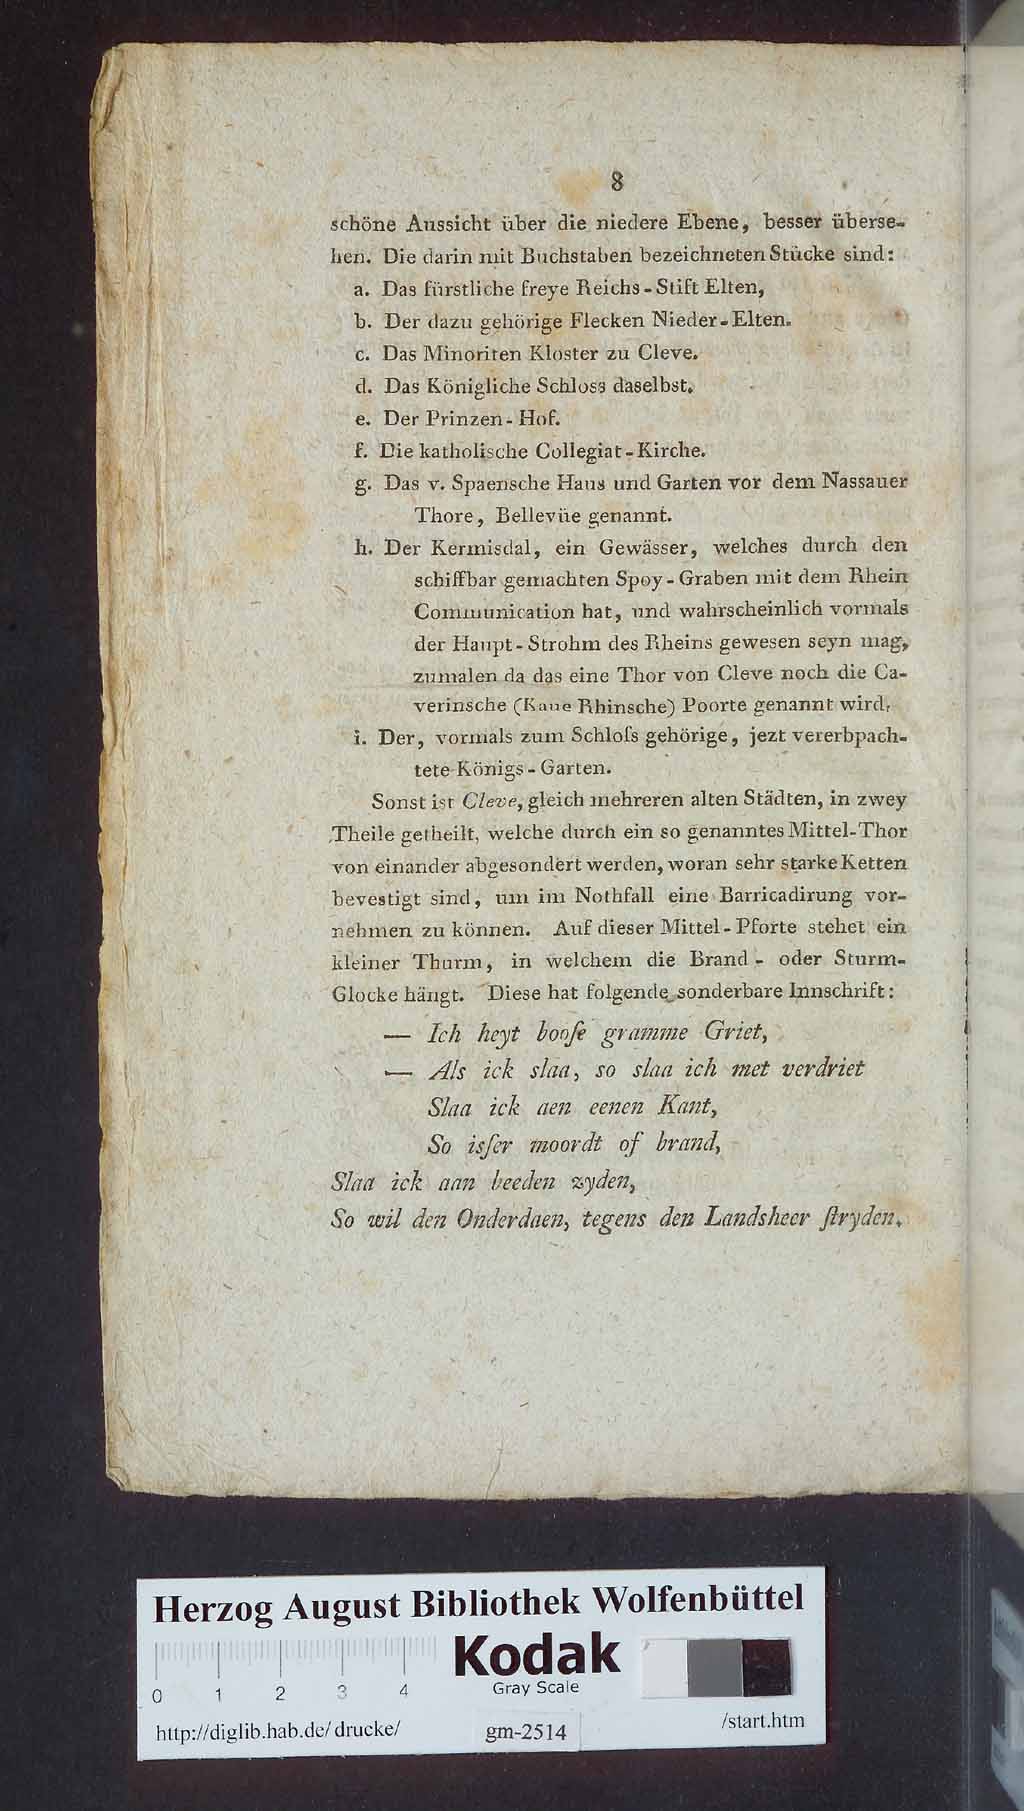 8
schöne Aussicht über die niedere Ebene, besser überse-
hen. Die darin mit Buchstaben bezeichneten Stücke sind:
a. Das fürstliche freye Reichs-Stift Elten,
b. Der dazu gehörige Flecken Nieder-Elten.
c. Das Minoriten Kloster zu Cleve.
d. Das Königliche Schloss daselbst.
e. Der Prinzen-Hof.
f. Die katholische Collegiat-Kirche.
g. Das v. Spaensche Haus und Garten vor dem Nassauer
Thore, Bellevüe genannt.
h. Der Kermisdal, ein Gewässer, welches durch den
schiffbar gemachten Spoy-Graben mit dem Rhein
Communication hat, und wahrscheinlich vormals
der Haupt-Strohm des Rheins gewesen seyn mag,
zumalen da das eine Thor von Cleve noch die Ca-
verinsche (Kaue Rhinsche) Poorte genannt wird.
i. Der, vormals zum Schloſs gehörige, jezt vererbpach-
tete Königs-Garten.
Sonst ist Cleve, gleich mehreren alten Städten, in zwey
Theile getheilt, welche durch ein so genanntes Mittel-Thor
von einander abgesondert werden, woran sehr starke Ketten
bevestigt sind, um im Nothfall eine Barricadirung vor-
nehmen zu können. Auf dieser Mittel-Pforte stehet ein
kleiner Thurm, in welchem die Brand- oder Sturm-
Glocke hängt. Diese hat folgende sonderbare Innschrift:
— Ich heyt booſe gramme Griet,
— Als ick slaa, so slaa ich met verdriet
Slaa ick aen eenen Kant,
So isſer moordt of brand,
Slaa ick aan beeden zyden,
So wil den Onderdaen, tegens den Landsheer ſtryden.
Herzog August Bibliothek Wolfenbüttel
Kodak
Gray Scale
0 1 2 3 4
http://diglib.hab.de/drucke/ gm-2514 /start.htm